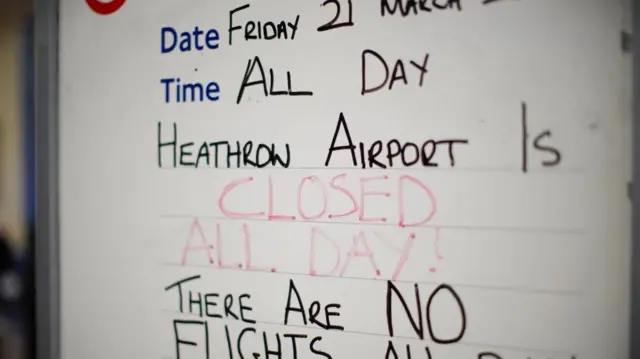 Date FRIDAY 21 MARCH
Time ALL DAY
HEATHROW AIRPORT IS
CLOSED
ALL DAY!
THERE ARE NO
FLIGHTS ALL